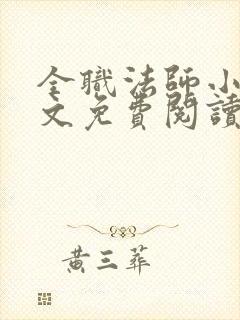 全職法師小
文免費閱讀
黃三葬